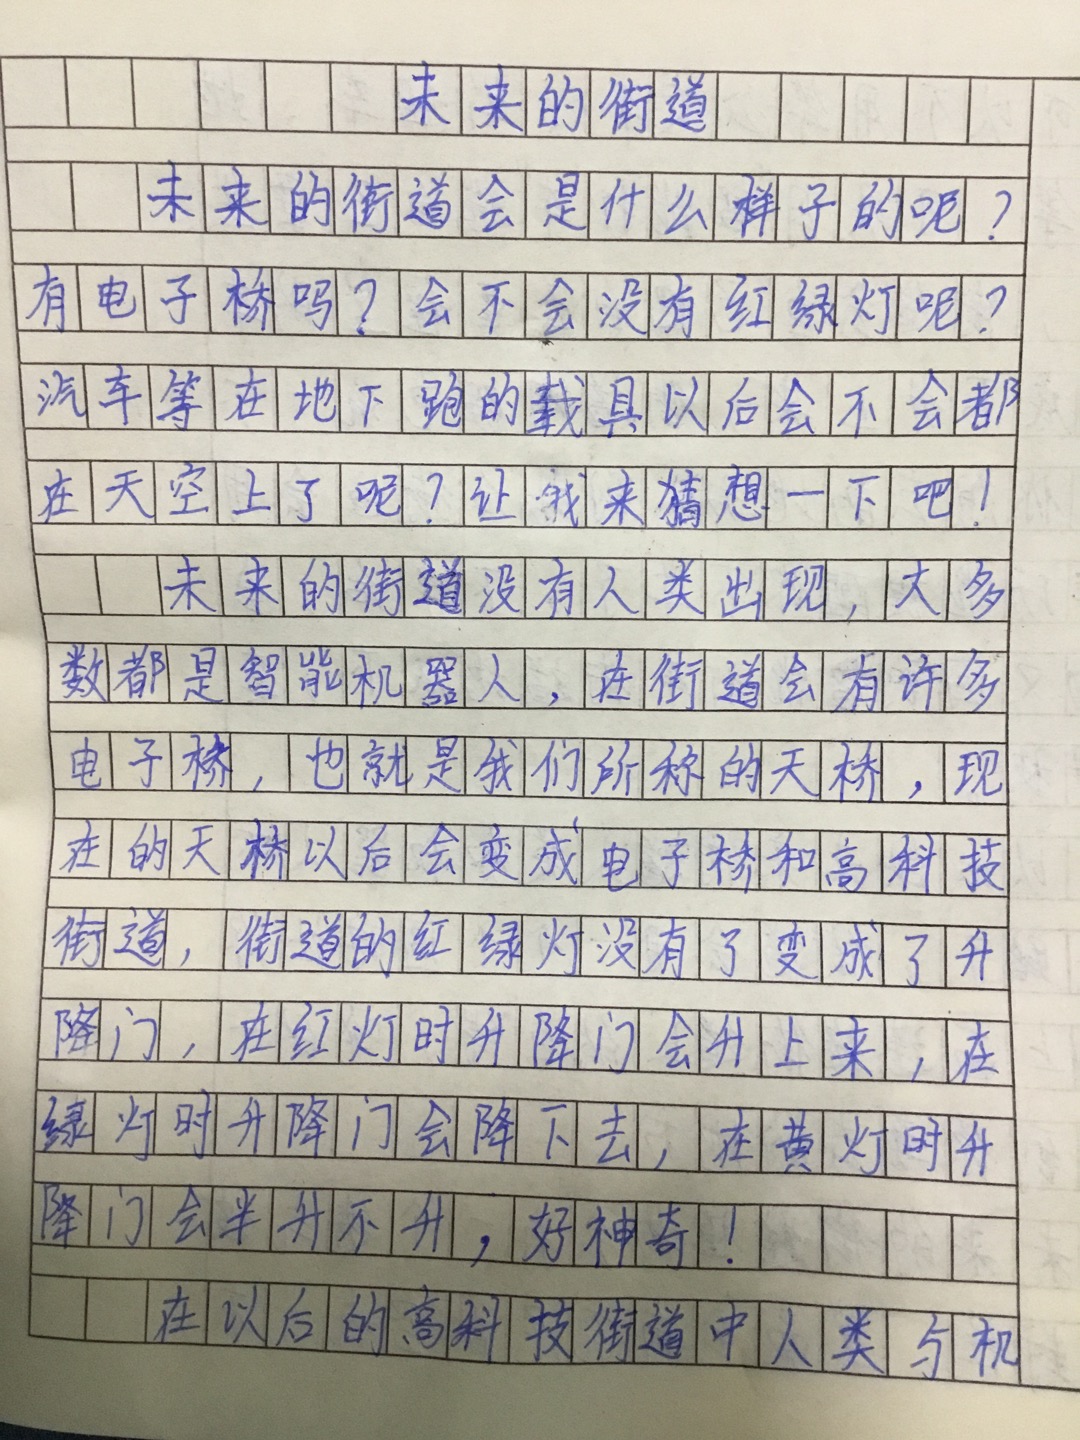 未来的街道
未来的街道会是什么样子的呢?
有电子桥吗?会不会没有红绿灯呢?
汽车等在地下跑的载具以后会不会都
在天空上了呢?让我来猜想一下吧!
未来的街道没有人类出现,大多
数都是智能机器人,在街道会有许多
电子桥,也就是我们所称的天桥,现
在的天桥以后会变成电子桥和高科技
街道,街道的红绿灯没有了变成了升
降门,在红灯时升降门会升上来,在
绿灯时升降门会降下去,在黄灯时升
降门会半升不升,好神奇!
在以后的高科技街道中人类与机